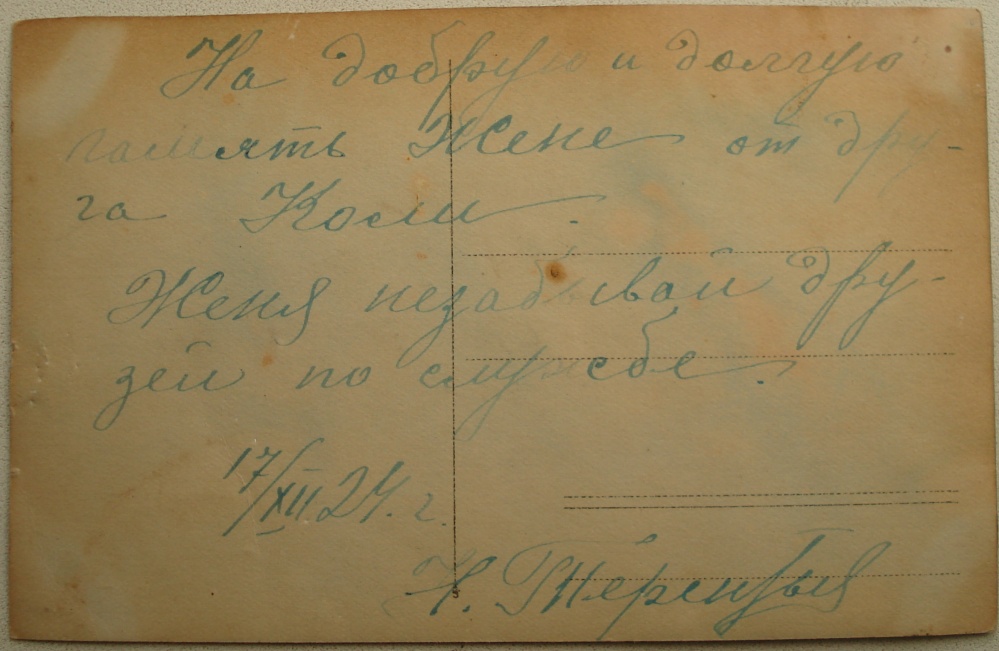 На добрую и долгую
память Жене от дру-
га Коли.
Женя незабывай дру-
зей по службе.
17/XII 24. г.
Н.